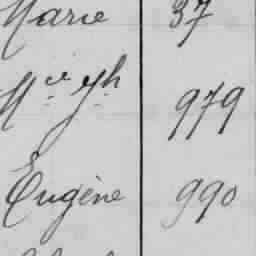 Marie 37
Mie Jh 979
Eugène 990